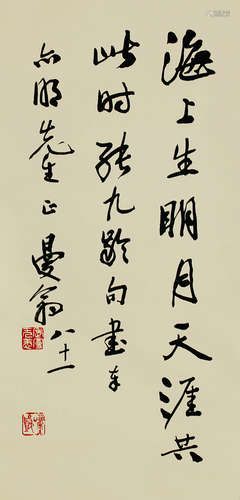 海上生明月天涯共
此时张九龄句书奉
亦明先生正 曼翁八十一